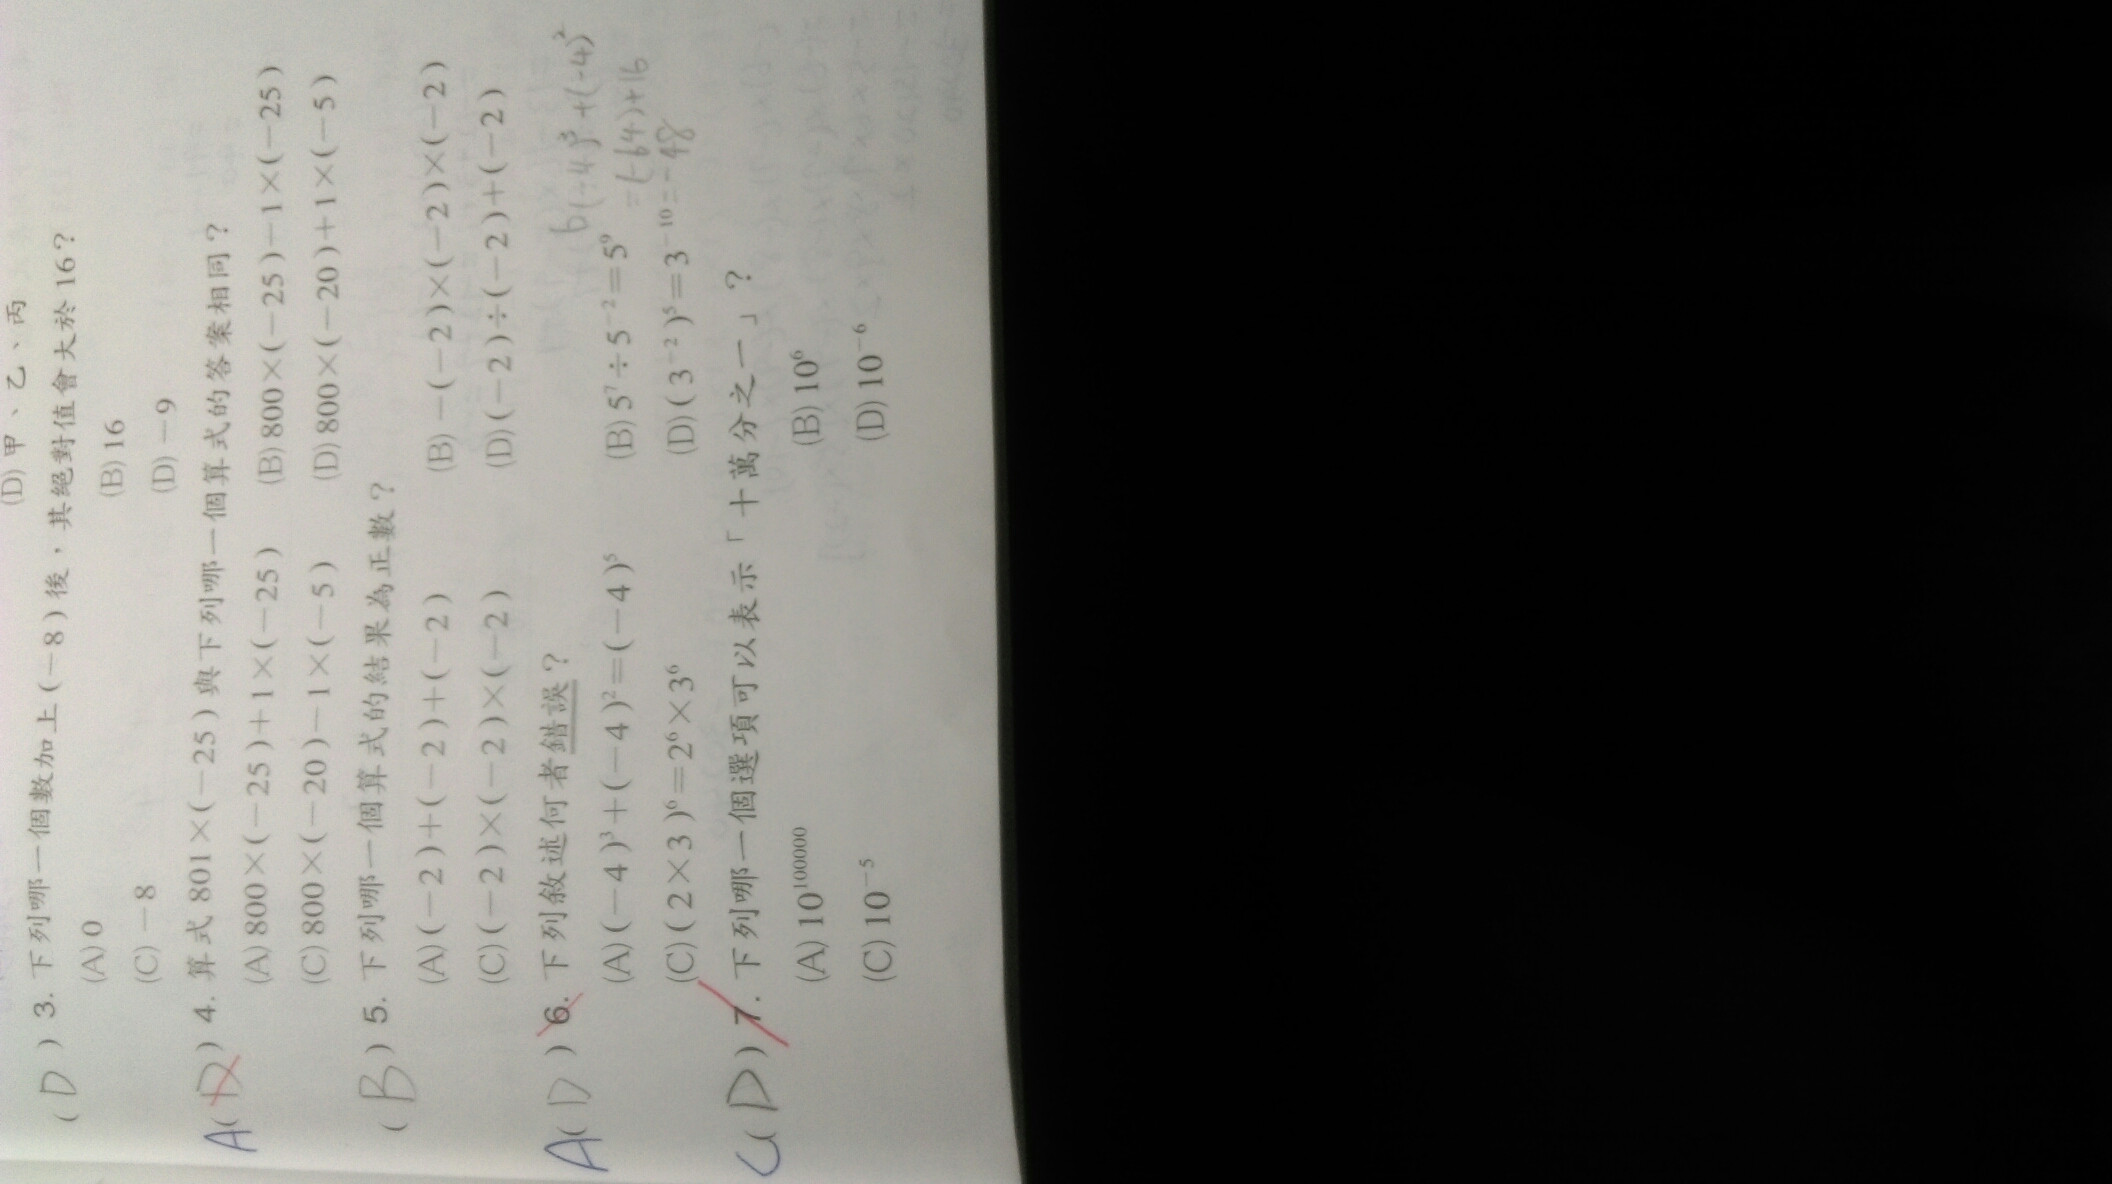 (D) 甲、乙、丙
( D ) 3. 下列哪一個數加上(－8)後，其絕對值會大於 16？
(A) 0 (B) 16
(C) －8 (D) －9
A( D ) 4. 算式 801×(－25)與下列哪一個算式的答案相同？
(A) 800×(－25)＋1×(－25) (B) 800×(－25)－1×(－25)
(C) 800×(－20)－1×(－5) (D) 800×(－20)＋1×(－5)
( B ) 5. 下列哪一個算式的結果為正數？
(A) (－2)＋(－2)＋(－2) (B) －(－2)×(－2)×(－2)
(C) (－2)×(－2)×(－2) (D) (－2)÷(－2)＋(－2)
A( D ) 6. 下列敘述何者錯誤？
6(-4)³+(-4)²
=(-64)+16
=-48
(A) (－4)³＋(－4)²＝(－4)⁵ (B) 5⁷÷5⁻²＝5⁹
(C) (2×3)⁶＝2⁶×3⁶ (D) (3⁻²)⁵＝3⁻¹⁰
C( D ) 7. 下列哪一個選項可以表示「十萬分之一」？
(A) 10¹⁰⁰⁰⁰⁰ (B) 10⁶
(C) 10⁻⁵ (D) 10⁻⁶